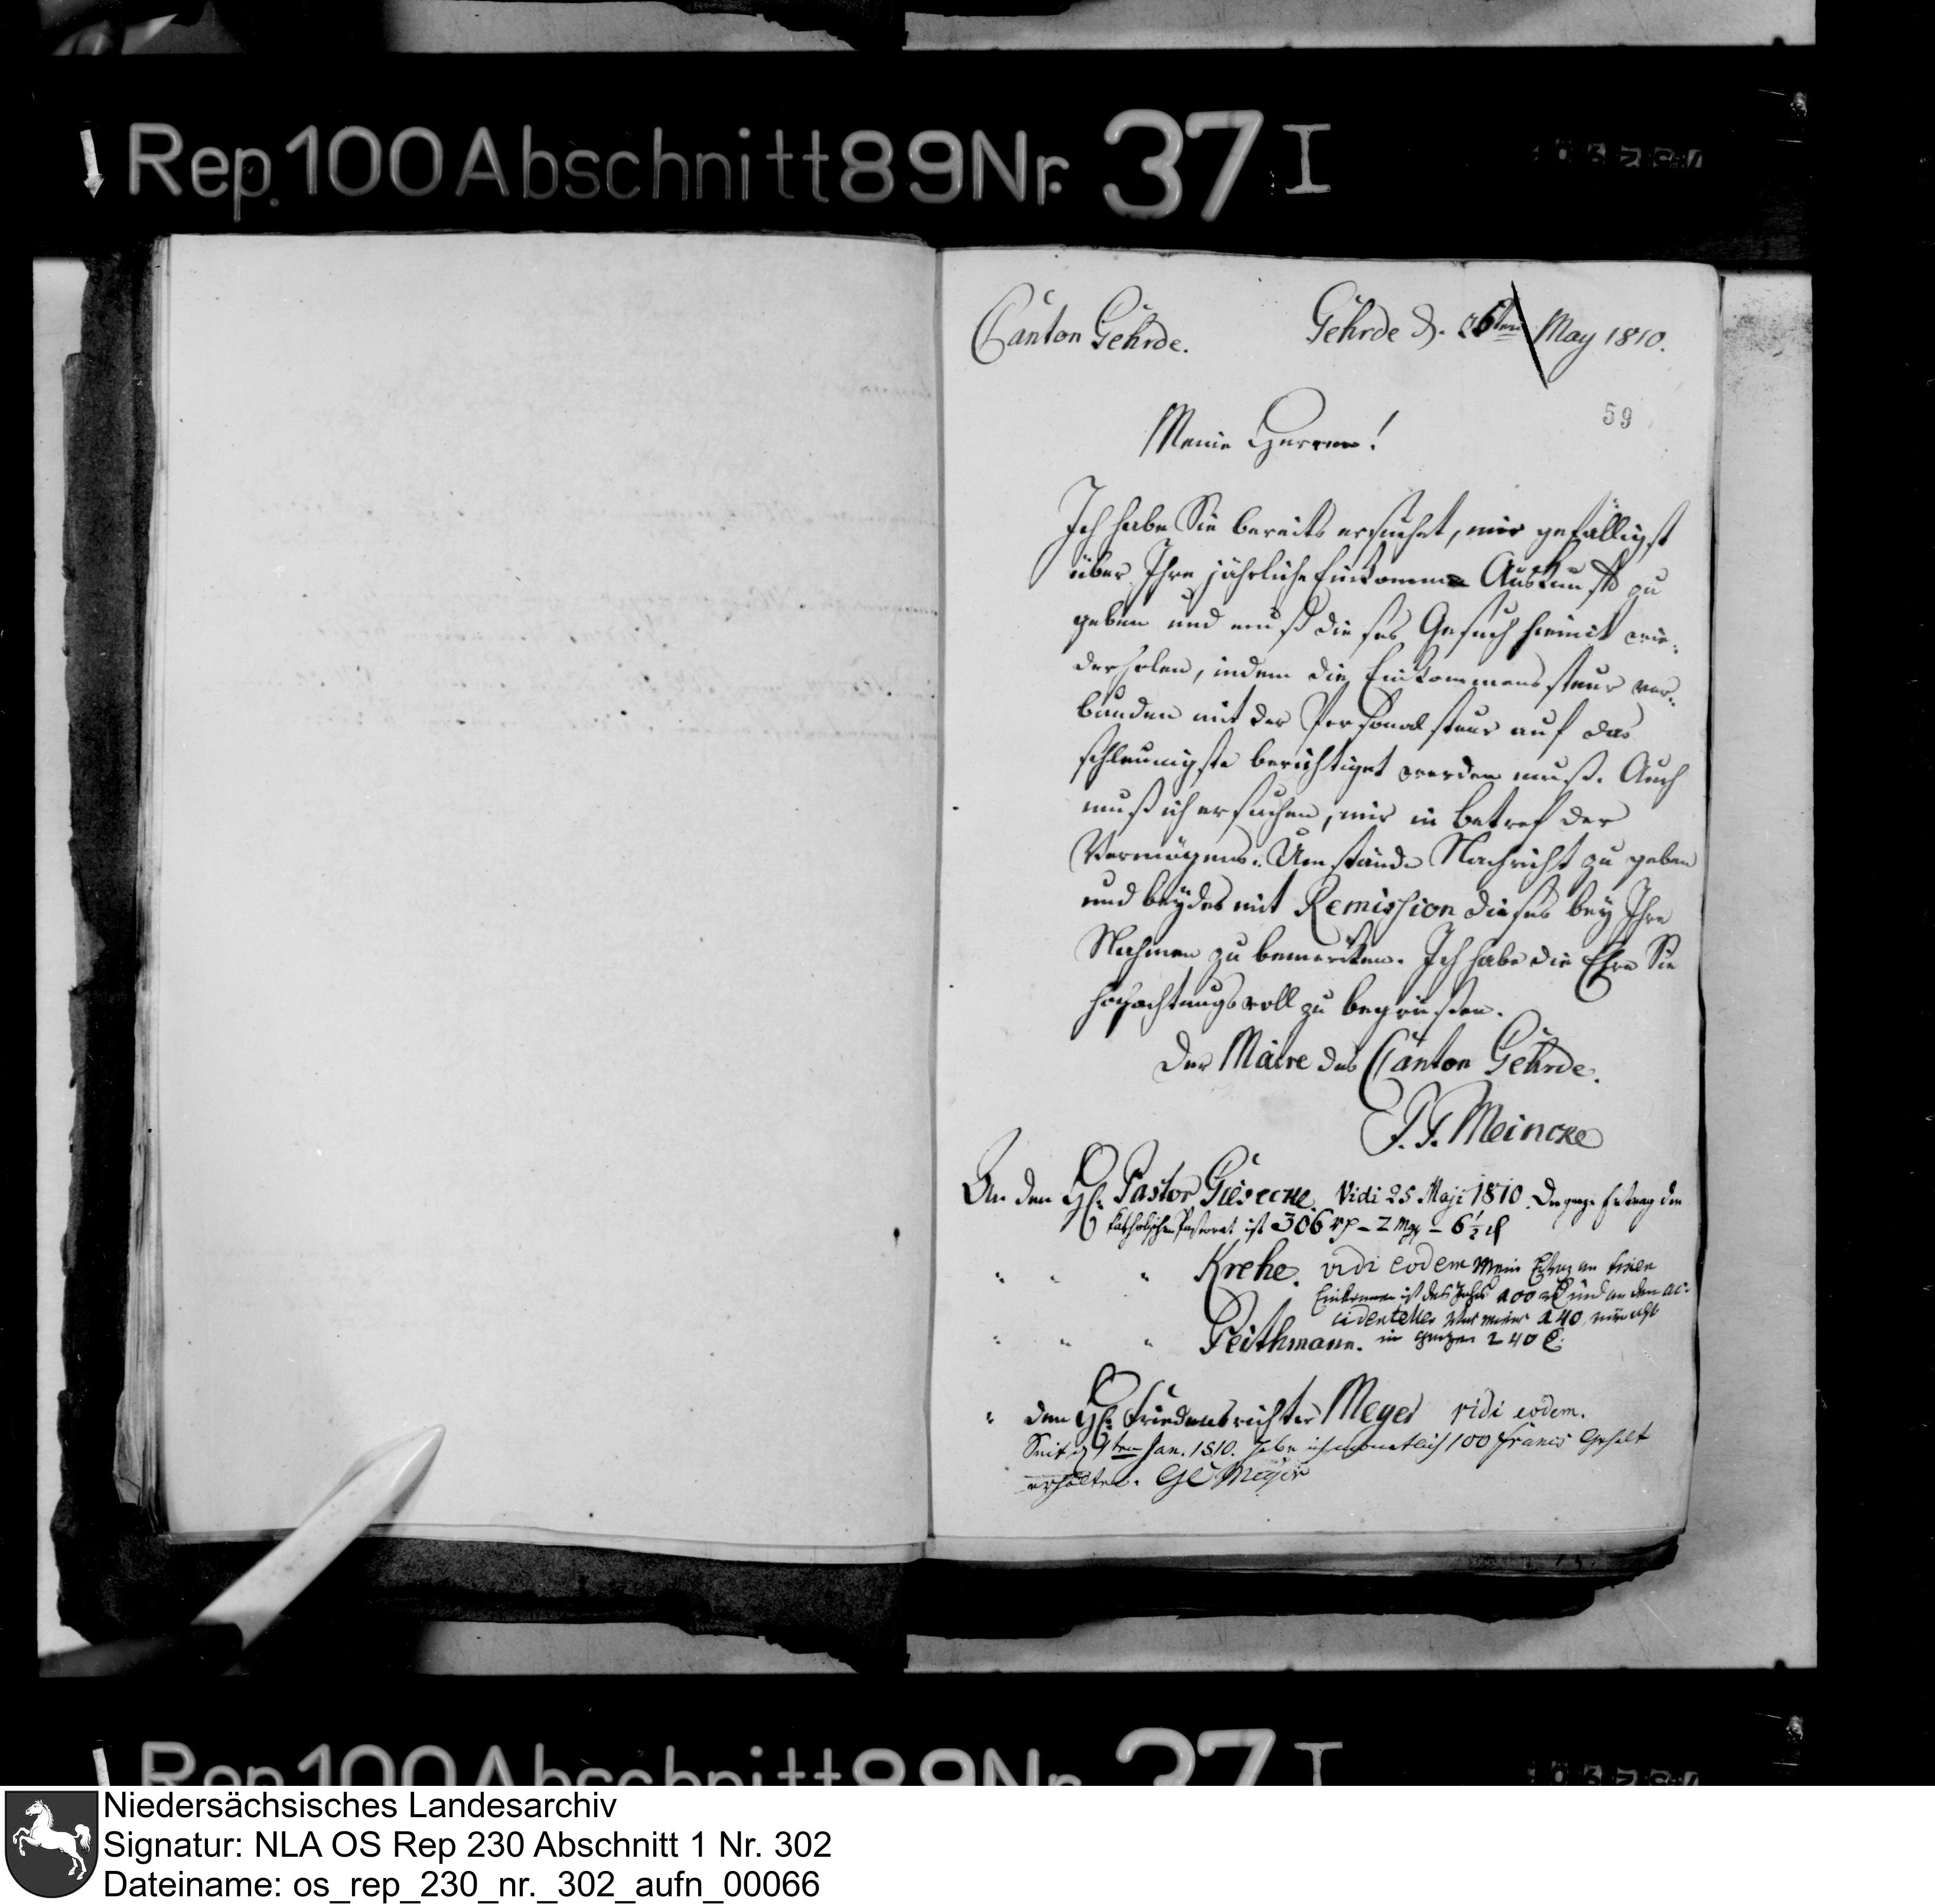 Rep. 100 Abschnitt 89 Nr. 37 I
Canton Gehrde. Gehrde d. 26ten May 1810.
59
Meine Herren!
Ich habe Sie bereits ersuchet, mir gefälligst
über Ihre jährliche Einkomme Auskunft zu
geben und muß dieses Gesuch hiemit wie-
derholen, indem die Einkommenssteur ver-
bunden mit der Personalsteur auf das
schleunigste berichtiget werden muß. Auch
muß ich ersuchen, mir in betref der
Vermögens-Umstände Nachricht zu geben
und beydes mit Remission dieses bey Ihre
Nahmen zu bemerken. Ich habe die Ehre Sie
hochachtungsvoll zu begrüßen.
Der Maire des Canton Gehrde.
Meincke
An den H. Pastor Giesecke. Vidi 25 Maji 1810. Der ganze Ertrag des
katholischen Pastorat ist 306 rp - 2 mgr - 6 1/2 d
" " " Krehe. vidi eodem Mein an fixen
Einkommen ist des Jahrs 100 und an den ac-
cidentellen 140, mithin
" " " Peithmann. im ganzen 240
" dem H. Friedensrichter Meyer vidi eodem.
Seit d 1ten Jan. 1810. habe ich monatlich 100 francs Gehalt
erhalten. Meyer
Rep. 100 Abschnitt 89 Nr. 37 I
Niedersächsisches Landesarchiv
Signatur: NLA OS Rep 230 Abschnitt 1 Nr. 302
Dateiname: os_rep_230_nr._302_aufn_00066